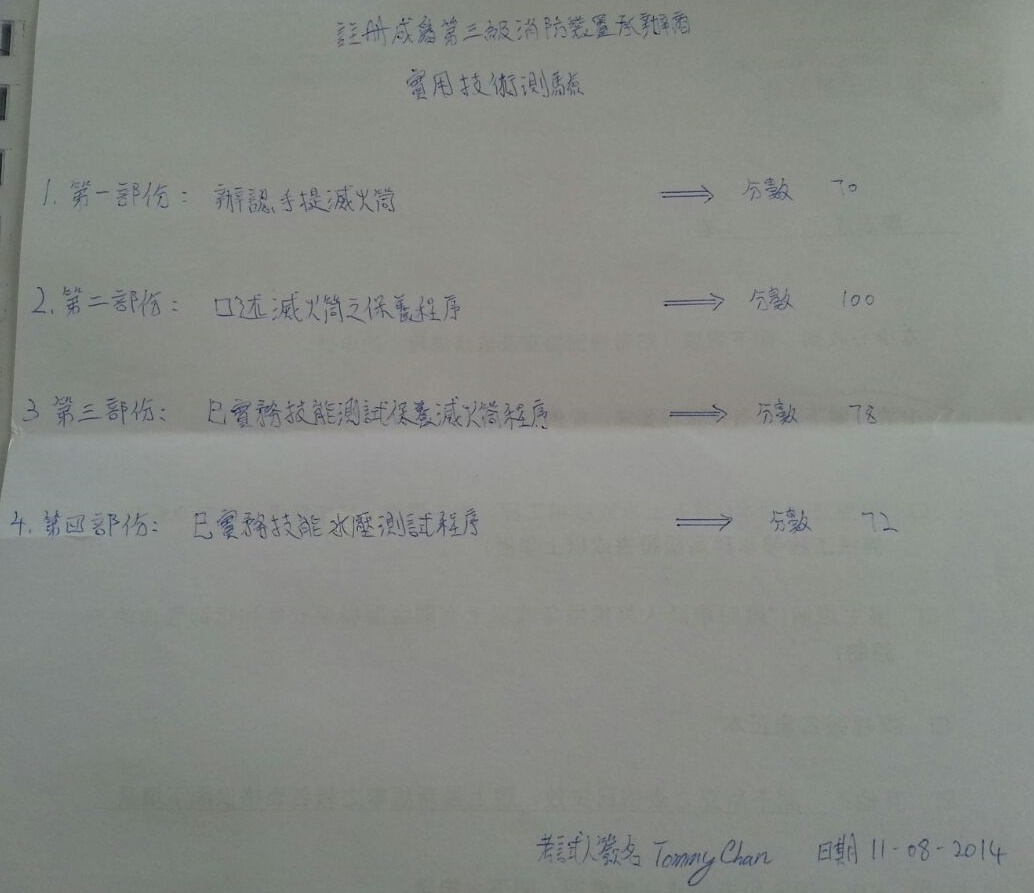 註册成為第三級消防裝置承辦商
實用技術測驗
1. 第一部份： 辦認手提滅火筒 ⟹ 分數 70
2. 第二部份： 口述滅火筒之保養程序 ⟹ 分數 100
3 第三部份： 已實務技能測試保養滅火筒程序 ⟹ 分數 78
4. 第四部份： 已實務技能水壓測試程序 ⟹ 分數 72
考試人簽名 Tommy Chan 日期 11-08-2014